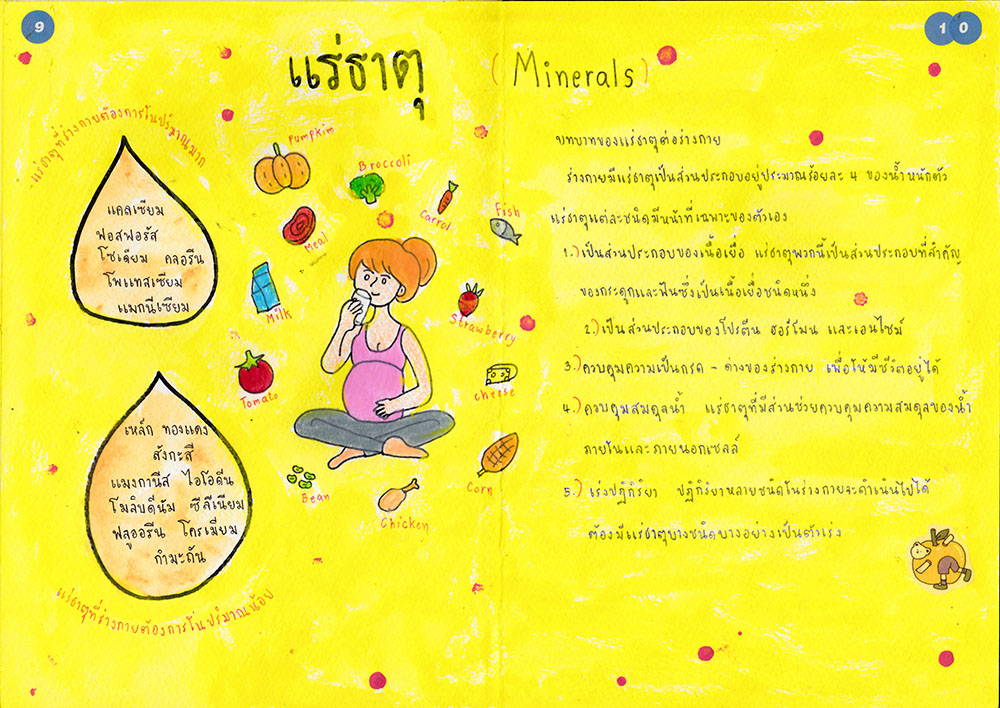 9
10
แร่ธาตุ
(Minerals)
แร่ธาตุที่ร่างกายต้องการในปริมาณมาก
แคลเซียม
ฟอสฟอรัส
โซเดียม คลอรีน
โพแทสเซียม
แมกนีเซียม
Pumpkim
Broccoli
Carrol
Fish
Meal
Milk
Strawberry
Tomato
Cheese
Corn
Bean
Chicken
เหล็ก ทองแดง
สังกะสี
แมงกานีส ไอโอดีน
โมลิบดีนัม ซีลีเนียม
ฟลูออรีน โครเมี่ยม
กำมะถัน
แร่ธาตุที่ร่างกายต้องการในปริมาณน้อย
บทบาทของแร่ธาตุต่อร่างกาย
ร่างกายมีแร่ธาตุเป็นส่วนประกอบอยู่ประมาณร้อยละ 4 ของน้ำหนักตัว
แร่ธาตุแต่ละชนิดมีหน้าที่เฉพาะของตัวเอง
1.) เป็นส่วนประกอบของเนื้อเยื่อ แร่ธาตุพวกนี้เป็นส่วนประกอบที่สำคัญ
ของกระดูกและฟันซึ่งเป็นเนื้อเยื่อชนิดหนึ่ง
2.) เป็นส่วนประกอบของโปรตีน ฮอร์โมน และเอนไซม์
3.) ควบคุมความเป็นกรด - ด่างของร่างกาย เพื่อให้มีชีวิตอยู่ได้
4.) ควบคุมสมดุลน้ำ แร่ธาตุที่มีส่วนช่วยควบคุมความสมดุลของน้ำ
ภายในและภายนอกเซลล์
5.) เร่งปฏิกิริยา ปฏิกิริยาหลายชนิดในร่างกายจะดำเนินไปได้
ต้องมีแร่ธาตุบางชนิดบางอย่างเป็นตัวเร่ง